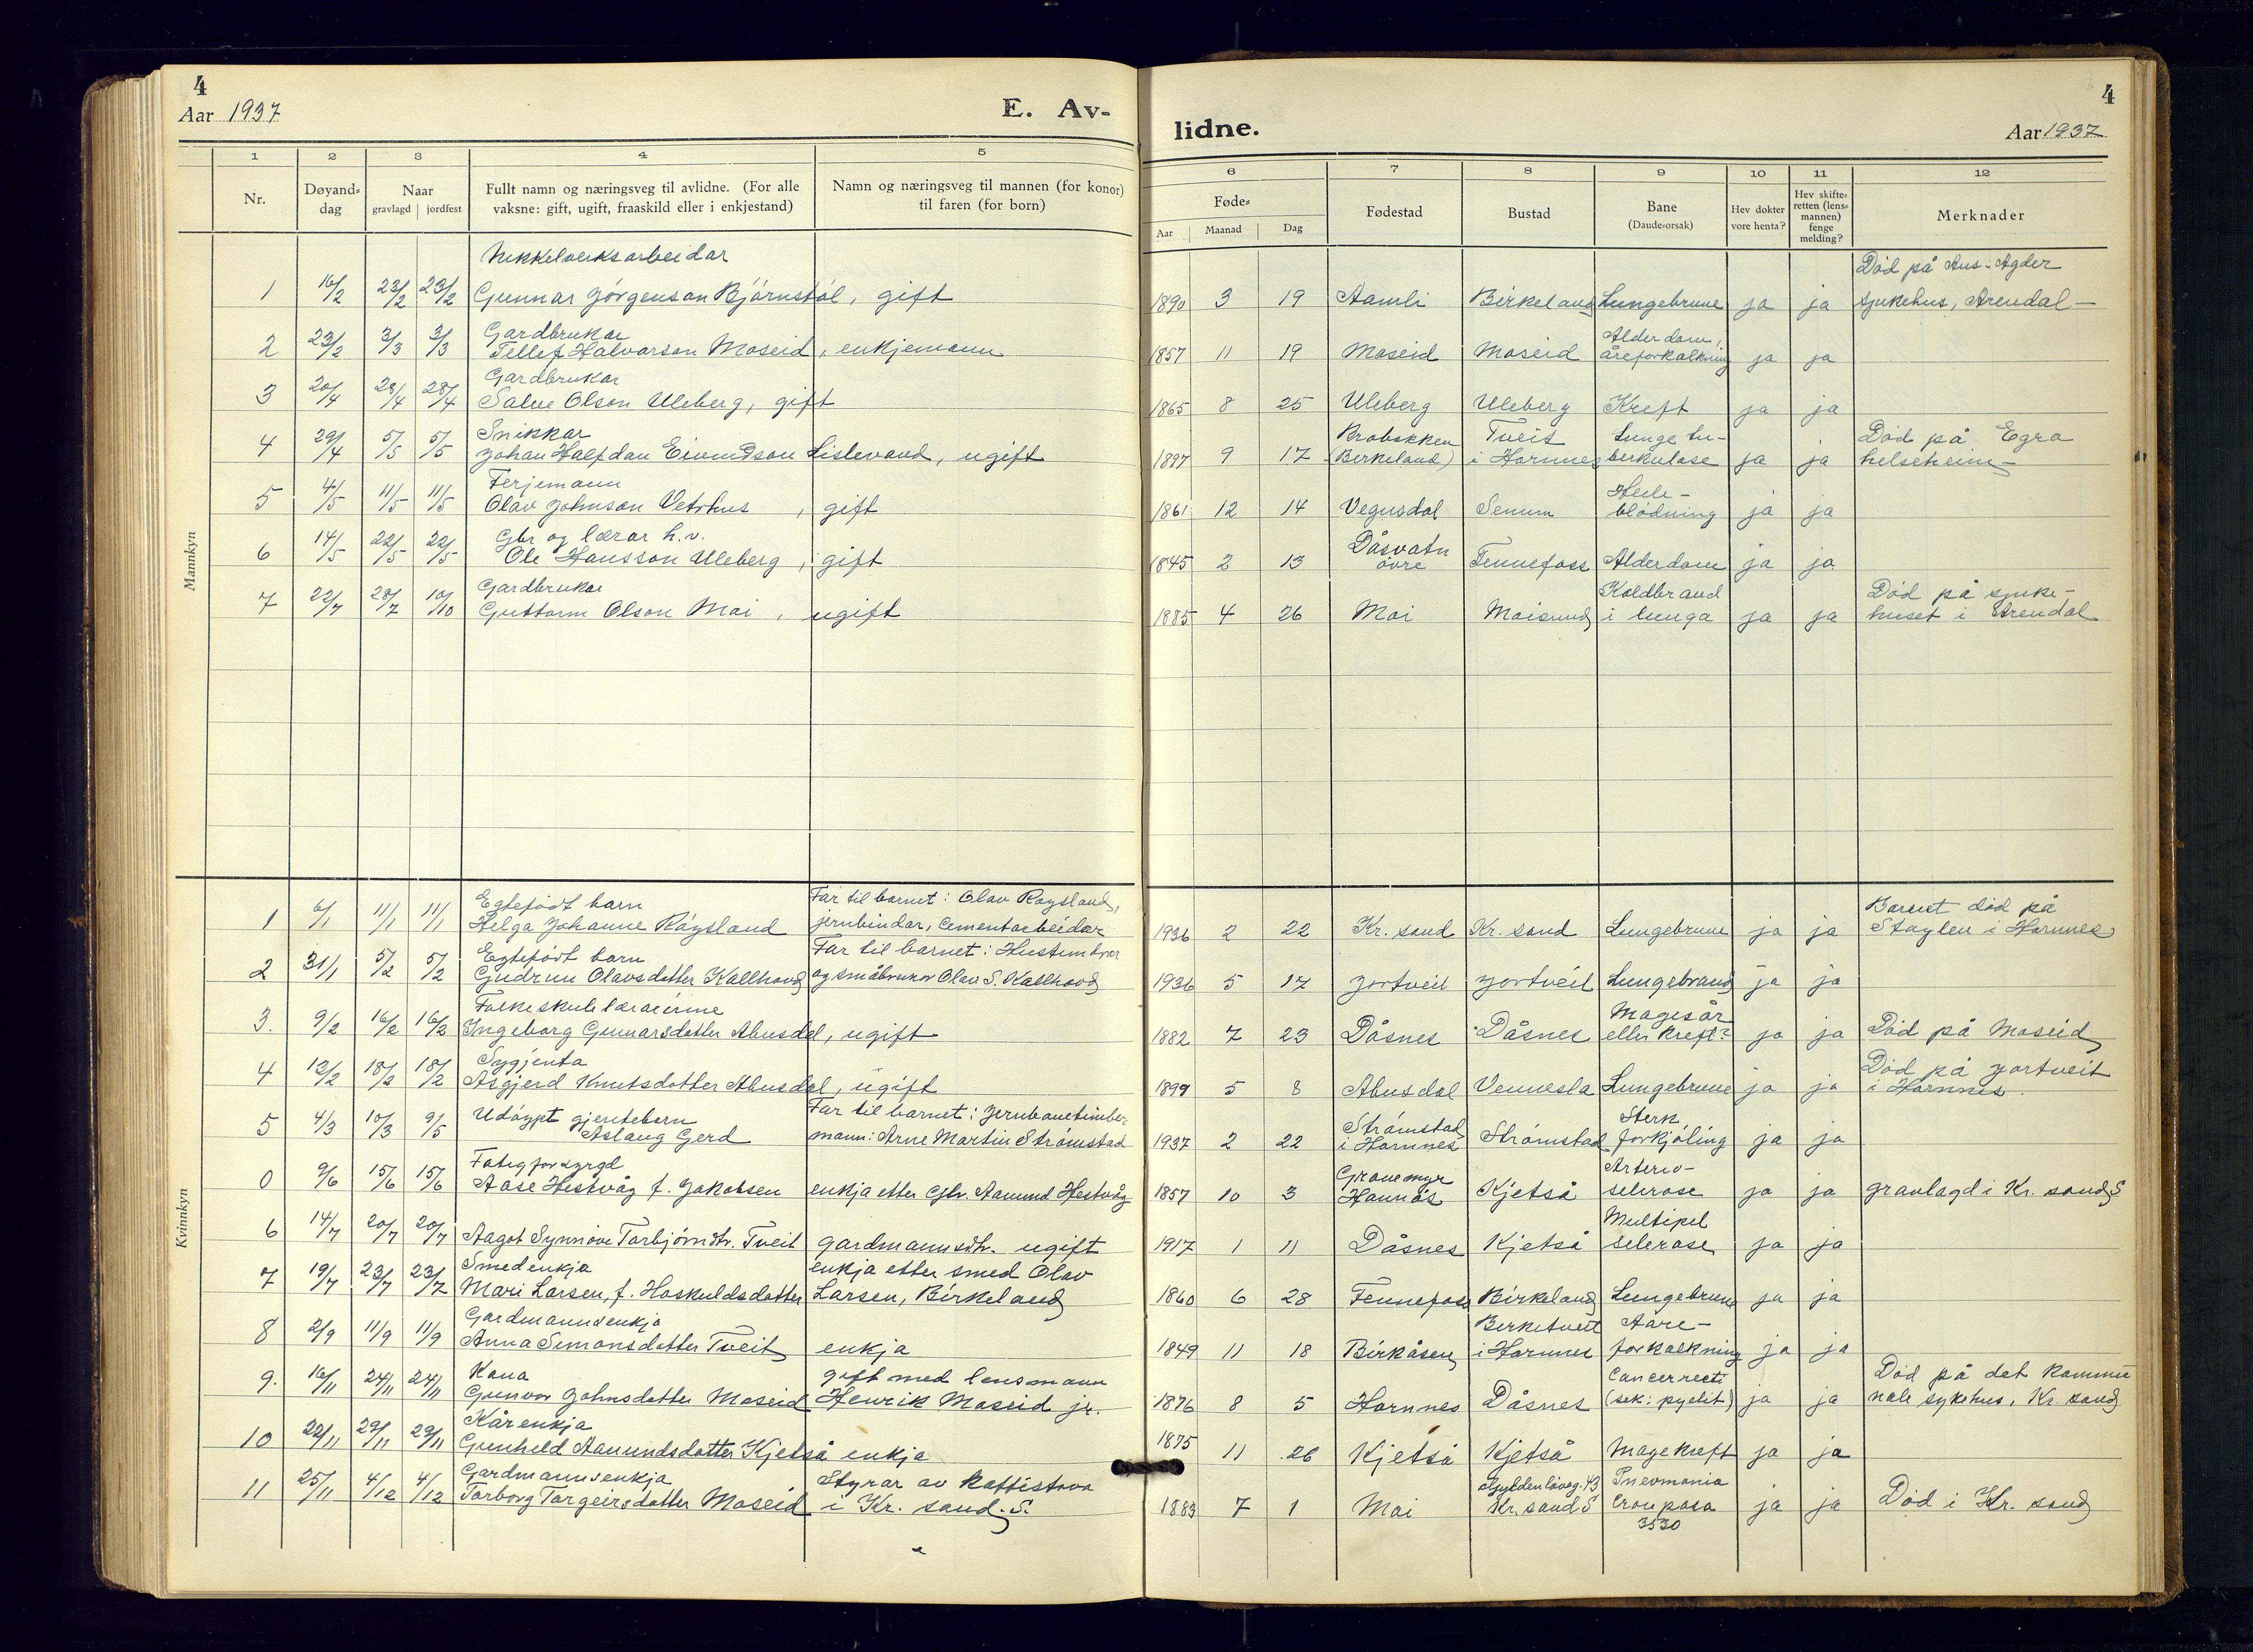 4
Aar 1937
E. Av-
1 2 3 4 5
Nr.
Døyand-dag
Naar
gravlagd jordfest
Fullt namn og næringsveg til avlidne. (For alle
vaksne: gift, ugift, fraaskild eller i enkjestand)
Namn og næringsveg til mannen (for konor)
til faren (for born)
Mannkyn
Nikkelverksarbeidar
1 16/2 23/2 23/2 Gunnar Jörgenson Björnstöl, gift
Gardbrukar
2 23/2 3/3 3/3 Tellef Halvorson Moseid, enkjemann
Gardbrukar
3 20/4 28/4 28/4 Salve Olson Uleberg, gift
Snikkar
4 29/4 5/5 5/5 Johan Halfdan Eivindson Lislevand, ugift
Ferjemann
5 4/5 11/5 11/5 Olav Johnson Vetrhus, gift
Gbr og lærar h.v.
6 14/5 22/5 22/5 Ole Hansson Uleberg, gift
Gardbrukar
7 22/7 28/7 10/10 Guttorm Olson Moi, ugift
Kvinnkyn
Egtefödt barn Far til barnet: Olav Röysland,
1 6/1 11/1 11/1 Helga Johanne Röysland jernbindar, cementarbeidar
Egtefödt barn Far til barnet: Hustimbrar
2 31/1 5/2 5/2 Gudrun Olavsdotter Kallhovd og småbrukar Olav S. Kallhovd
Folkeskulelærarinne
3. 9/2 16/2 16/2 Ingeborg Gunnarsdotter Abusdal, ugift
Sygjenta
4 12/2 18/2 18/2 Åsgjerd Knutsdotter Abusdal, ugift
Udöypt gjentebarn Far til barnet: Jernbanetimber-
5 4/3 10/3 9/5 Aslaug Gerd mann: Arne Martin Strömstad
Fatigforsyrgd
0 9/6 15/6 15/6 Aase Hestvåg f. Jakobsen enkja etter gbr. Aamund Hestvåg
6 14/7 20/7 20/7 Aagot Synnöve Torbjörnsdtr. Tveit gardmannsdtr. ugift
Smedenkja enkja etter smed Olav
7 19/7 23/7 23/7 Mari Larsen, f. Hoskuldsdotter Larsen, Birkeland
Gardmannsenkja
8 2/9 11/9 11/9 Anna Simonsdotter Tveit enkja
Kona gift med lensmann
9. 16/11 24/11 24/11 Gunvor Johnsdotter Moseid Henrik Moseid jr.
Kårenkja
10 22/11 29/11 29/11 Gunhild Aamundsdotter Kjetså enkja
Gardmannsenkja Styrar av kaffistova
11 25/11 4/12 4/12 Torborg Torgeirsdotter Moseid i Kr. sand. S.
4
lidne.
Aar 1937
6 7 8 9 10 11 12
Føde-
Aar Maanad Dag
Fødestad
Bustad
Bane
(Daude-orsak)
Hev dokter
vore henta?
Hev skifte-
retten (lens-
mannen)
fenge
melding?
Merknader
Död på Aus-Agder
1890 3 19 Aamli Birkeland Lungebrune ja ja sjukehus, Arendal
Alderdom,
1857 11 19 Moseid Moseid åreforkalkning ja ja
1865 8 25 Uleberg Uleberg Kreft ja ja
Tveit Lunge tu- Död på Egra
1897 9 17 (Birkeland) i Hornnes berkulose ja ja helseheim
Heile-
1861 12 14 Vegusdal Senum blödning ja ja
Dåsvatn
1845 2 13 övre Fennefoss Alderdom ja ja
Koldbrand Död på sjuke-
1885 4 26 Moi Moisund i lunga ja ja huset i Arendal
Barnet död på
1936 2 22 Kr. sand Kr. sand Lungebrune ja ja Støylen i Hornnes
1936 5 17 Jortveit Jortveit Lungebrand ja ja
Magesår
1882 7 23 Dåsnes Dåsnes eller kreft? ja ja Död på Moseid
Död på Jortveit
1899 5 8 Abusdal Vennesla Lungebrune ja ja i Hornnes.
Strömstad Sterk
1937 2 22 i Hornnes Strömstad forkjöling ja ja
Gravemyr Arterio-
1857 10 3 Hannås Kjetså sclerose ja ja gravlagd i Kr. sand S
Multipel
1917 1 11 Dåsnes Kjetså sclerose ja ja
1860 6 28 Fennefoss Birkeland Lungebrune ja ja
Birketveit Aare-
1849 11 18 Birkåsen i Hornnes forkalkning ja ja
Cancer recti Död på det kommu
1876 8 5 Hornnes Dåsnes (sek: pyelit) ja ja nale sykehus, Kr. sand
1875 11 26 Kjetså Kjetså Magekreft ja ja
Gyldenlöveg. 43 Pneumonia
1883 7 1 Moi Kr. sand S crouposa ja ja Död i Kr. sand
3530